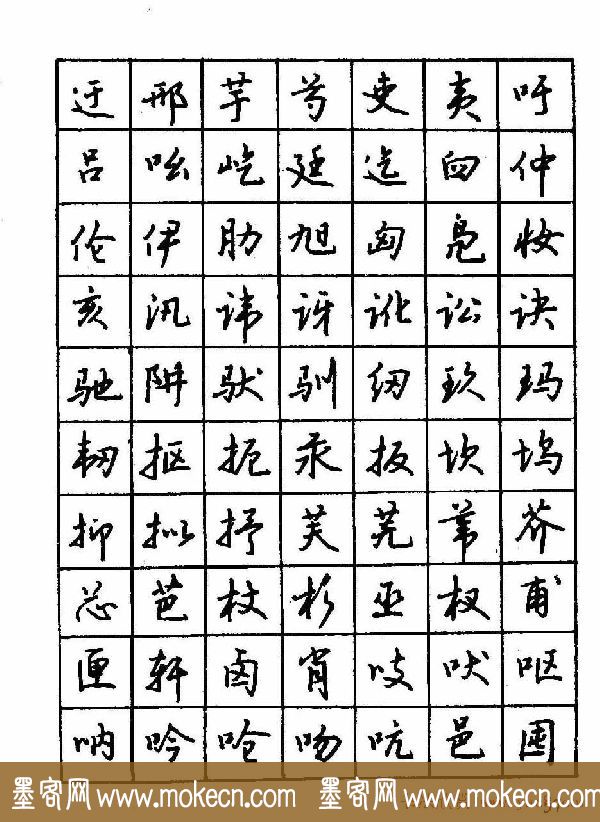 迂 邢 芋 芍 吏 夷 吁
吕 吆 屹 廷 迄 臼 仲
伦 伊 肋 旭 匈 凫 妆
亥 汛 讳 讶 讹 讼 诀
驰 阱 驮 驯 纫 玖 玛
韧 抠 扼 汞 扳 坎 坞
抑 拟 抒 芙 芜 苇 芥
芯 芭 杖 杉 巫 杈 甫
匣 轩 卤 肖 吱 吠 呕
呐 吟 呛 吻 吭 邑 囤
墨客网 www.mokecn.com 墨客网 www.mokecn.com